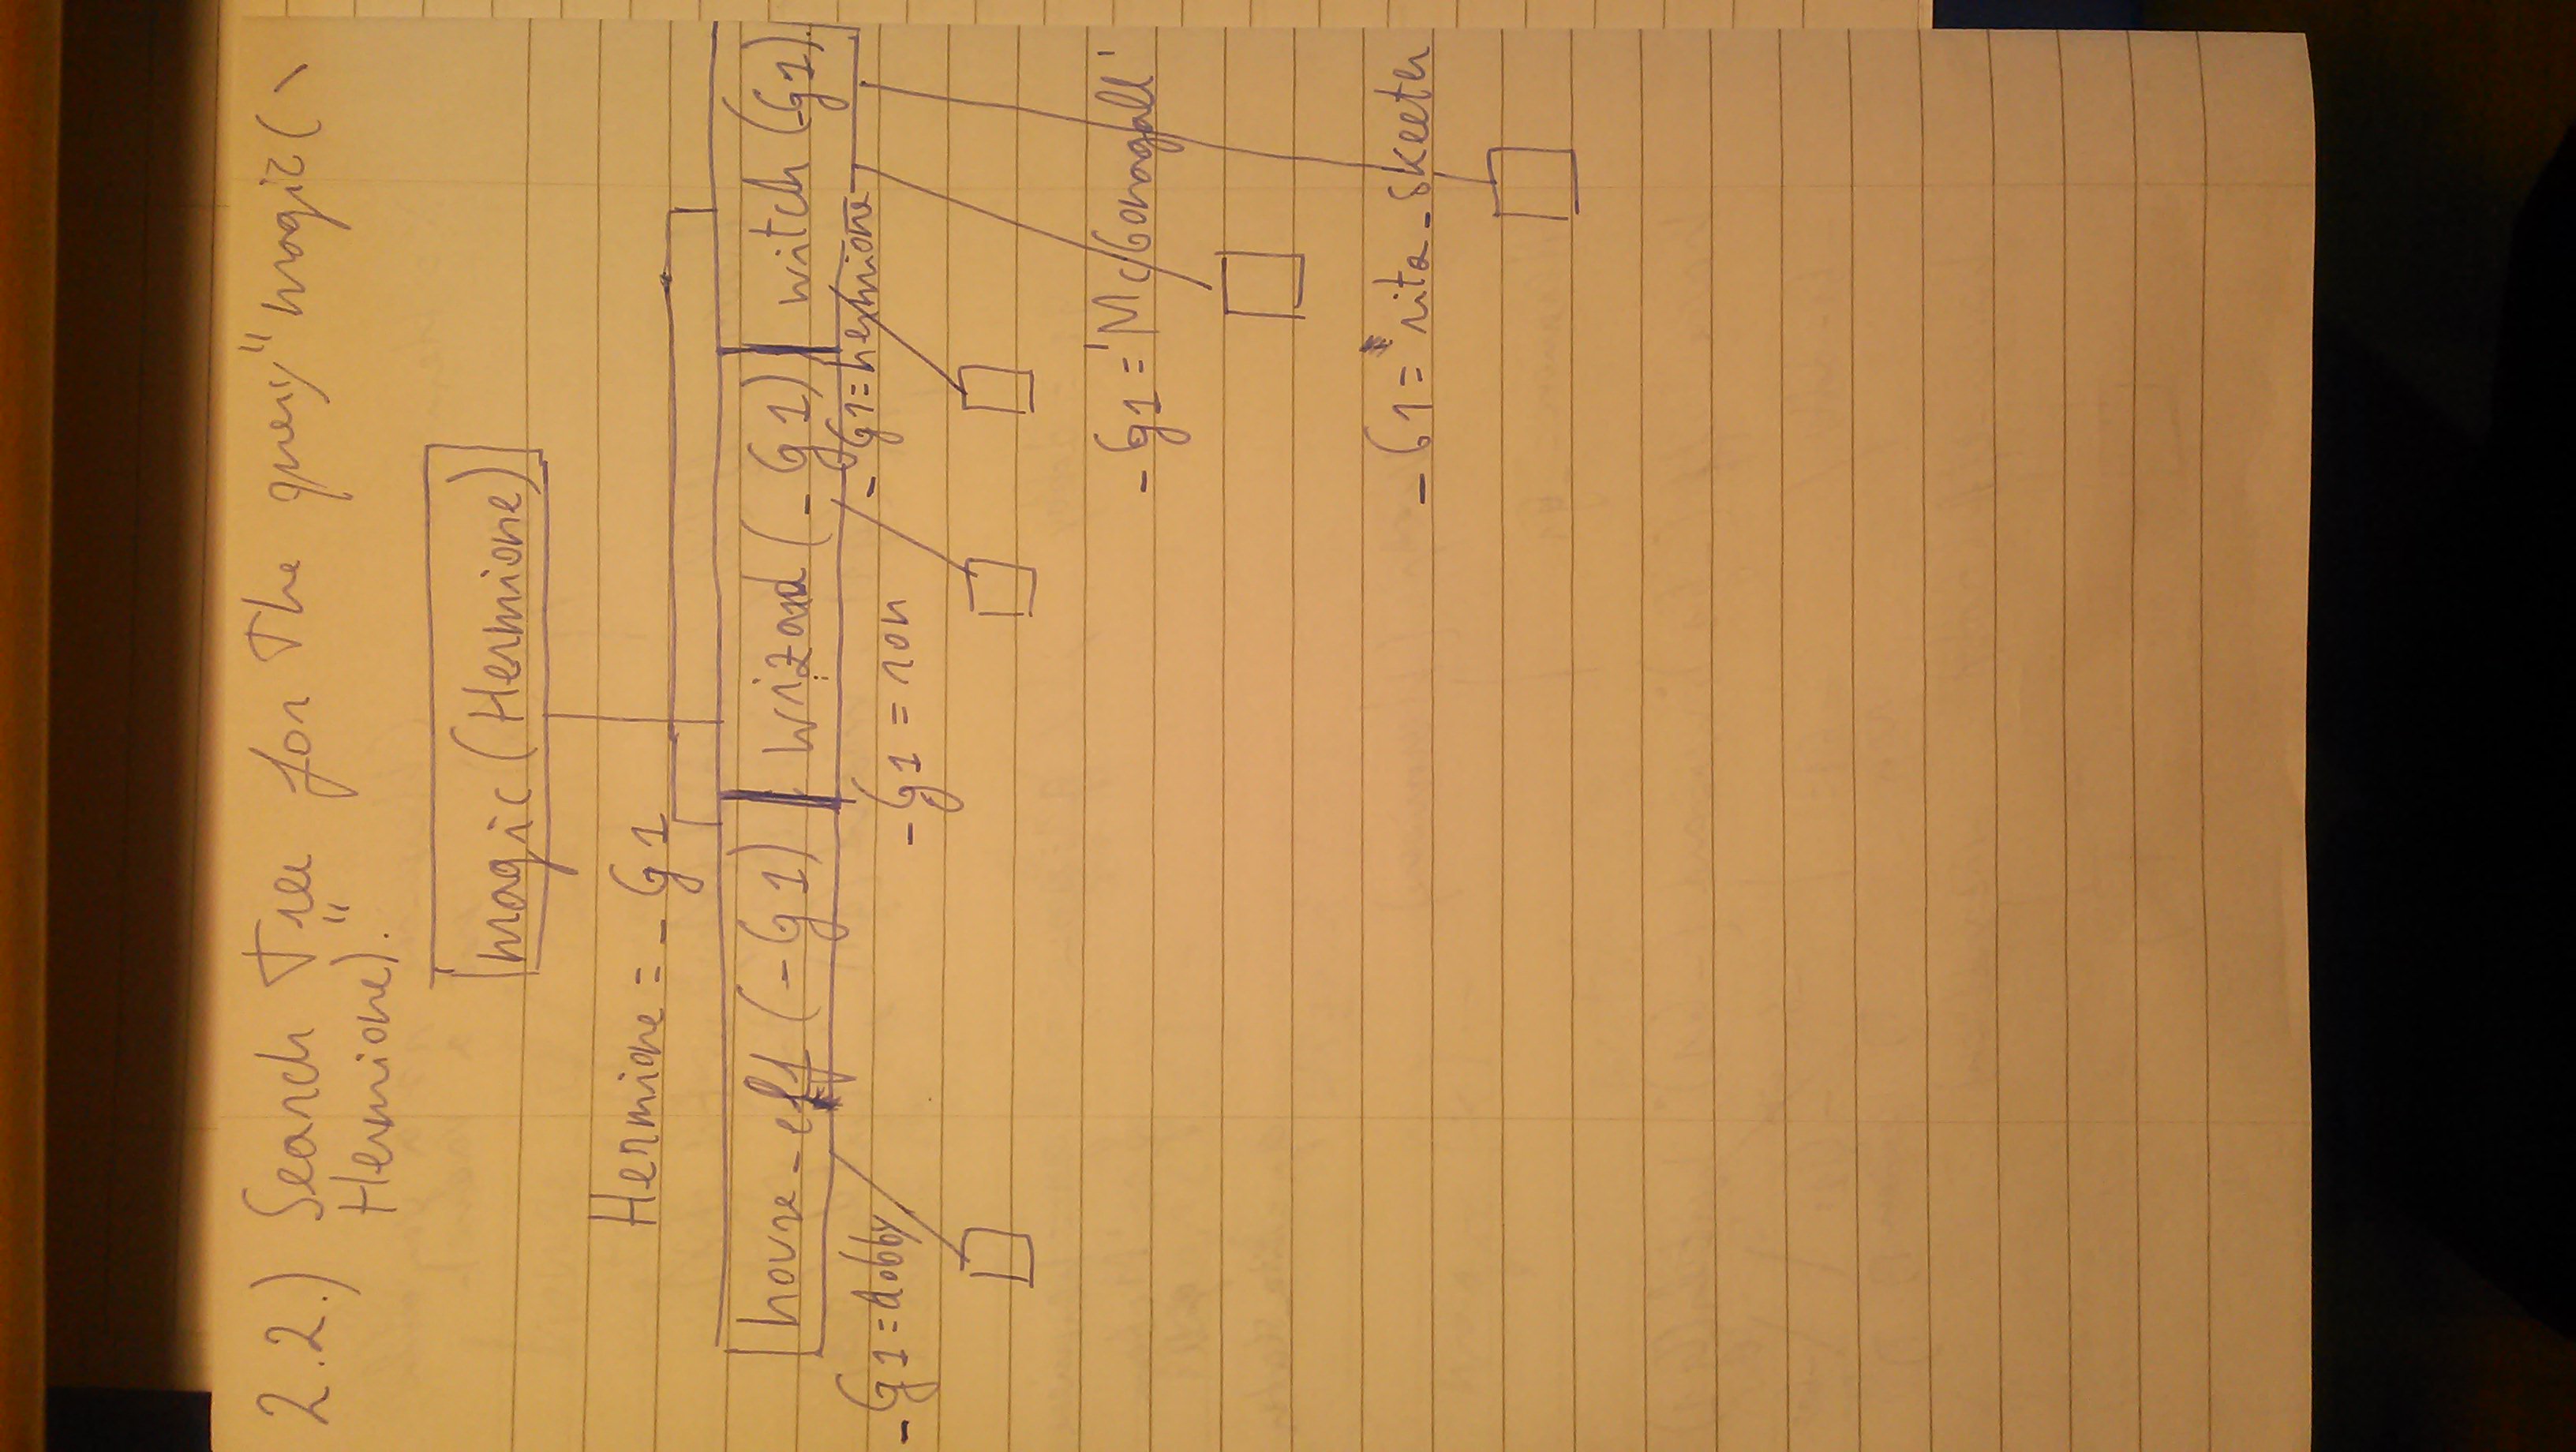 2.2.) Search Tree for The query "magic( \
Hermione)."
magic (Hermione)
Hermione = _G1
house_elf (_G1) wizard (_G1) witch (_G1).
_G1 = dobby _G1 = ron _G1 = hermione
_G1 = 'McGonagall'
_G1 = rita_skeeter